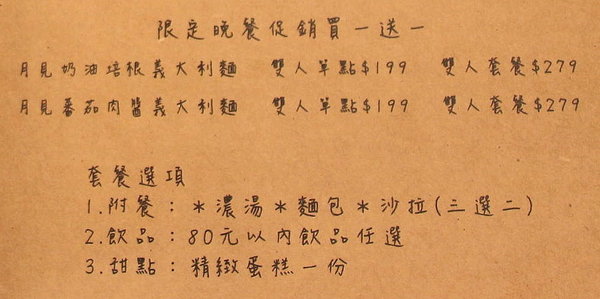 限定晚餐促銷買一送一
月見奶油培根義大利麵 雙人單點$199 雙人套餐$279
月見蕃茄肉醬義大利麵 雙人單點$199 雙人套餐$279
套餐選項
1.附餐：*濃湯*麵包*沙拉(三選二)
2.飲品：80元以內飲品任選
3.甜點：精緻蛋糕一份